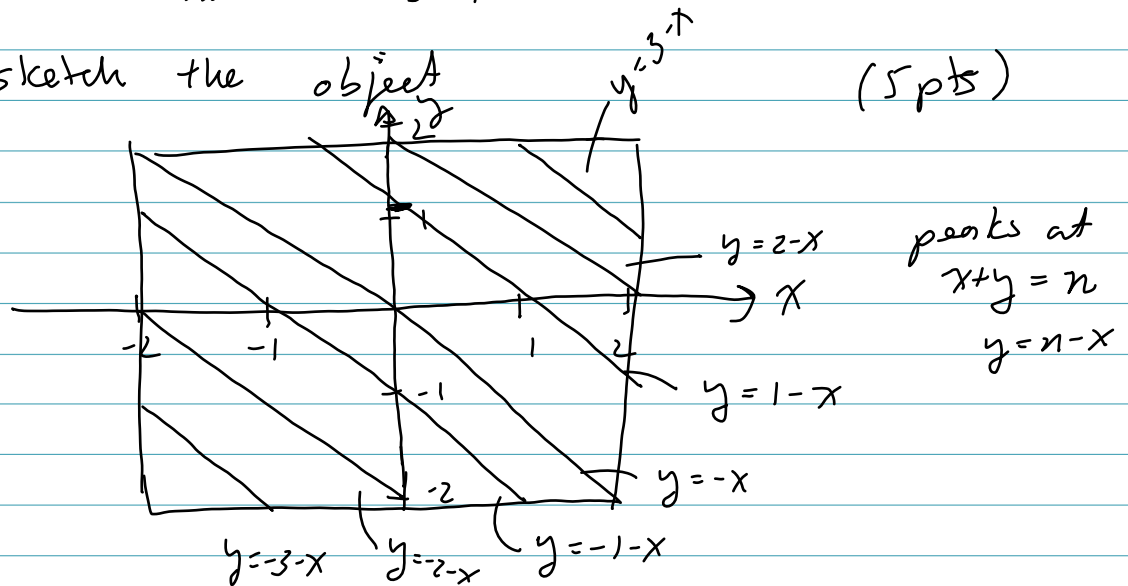 sketch the object (5 pts)
y=3-x
y
2
1
y=2-x
peaks at
x+y=n
x
y=n-x
-2 -1 1 2
-1
y=1-x
-2
y=-x
y=-3-x y=-2-x y=-1-x